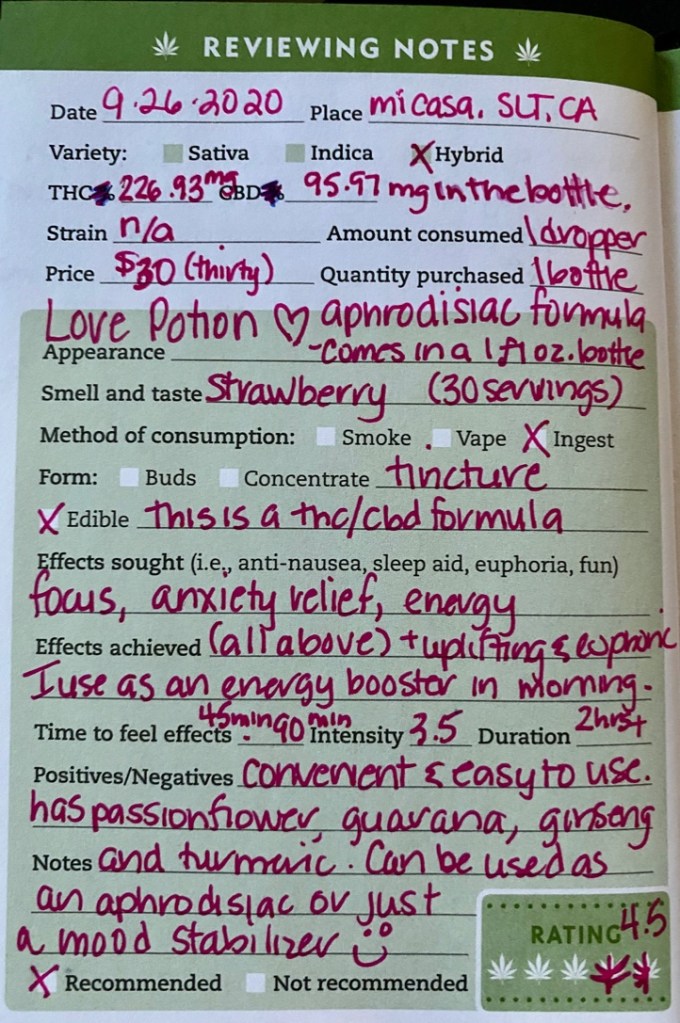 REVIEWING NOTES
Date 9.26.2020 Place mi casa. SLT, CA
Variety: Sativa Indica X Hybrid
THC 226.93mg CBD 95.97 mg in the bottle.
Strain n/a Amount consumed 1 dropper
Price $30 (thirty) Quantity purchased 1 bottle
Love Potion ♡ aphrodisiac formula
Appearance -comes in a 1 fl oz. bottle
Smell and taste Strawberry (30 servings)
Method of consumption: Smoke Vape X Ingest
Form: Buds Concentrate tincture
X Edible this is a thc/cbd formula
Effects sought (i.e., anti-nausea, sleep aid, euphoria, fun)
focus, anxiety relief, energy
Effects achieved (all above) + uplifting & euphoric
I use as an energy booster in morning.
Time to feel effects 45min-90min Intensity 3.5 Duration 2hrs+
Positives/Negatives convenient & easy to use.
has passionflower, guarana, ginseng
Notes and turmeric. Can be used as
an aphrodisiac or just
a mood stabilizer :)
RATING 4.5
X Recommended Not recommended